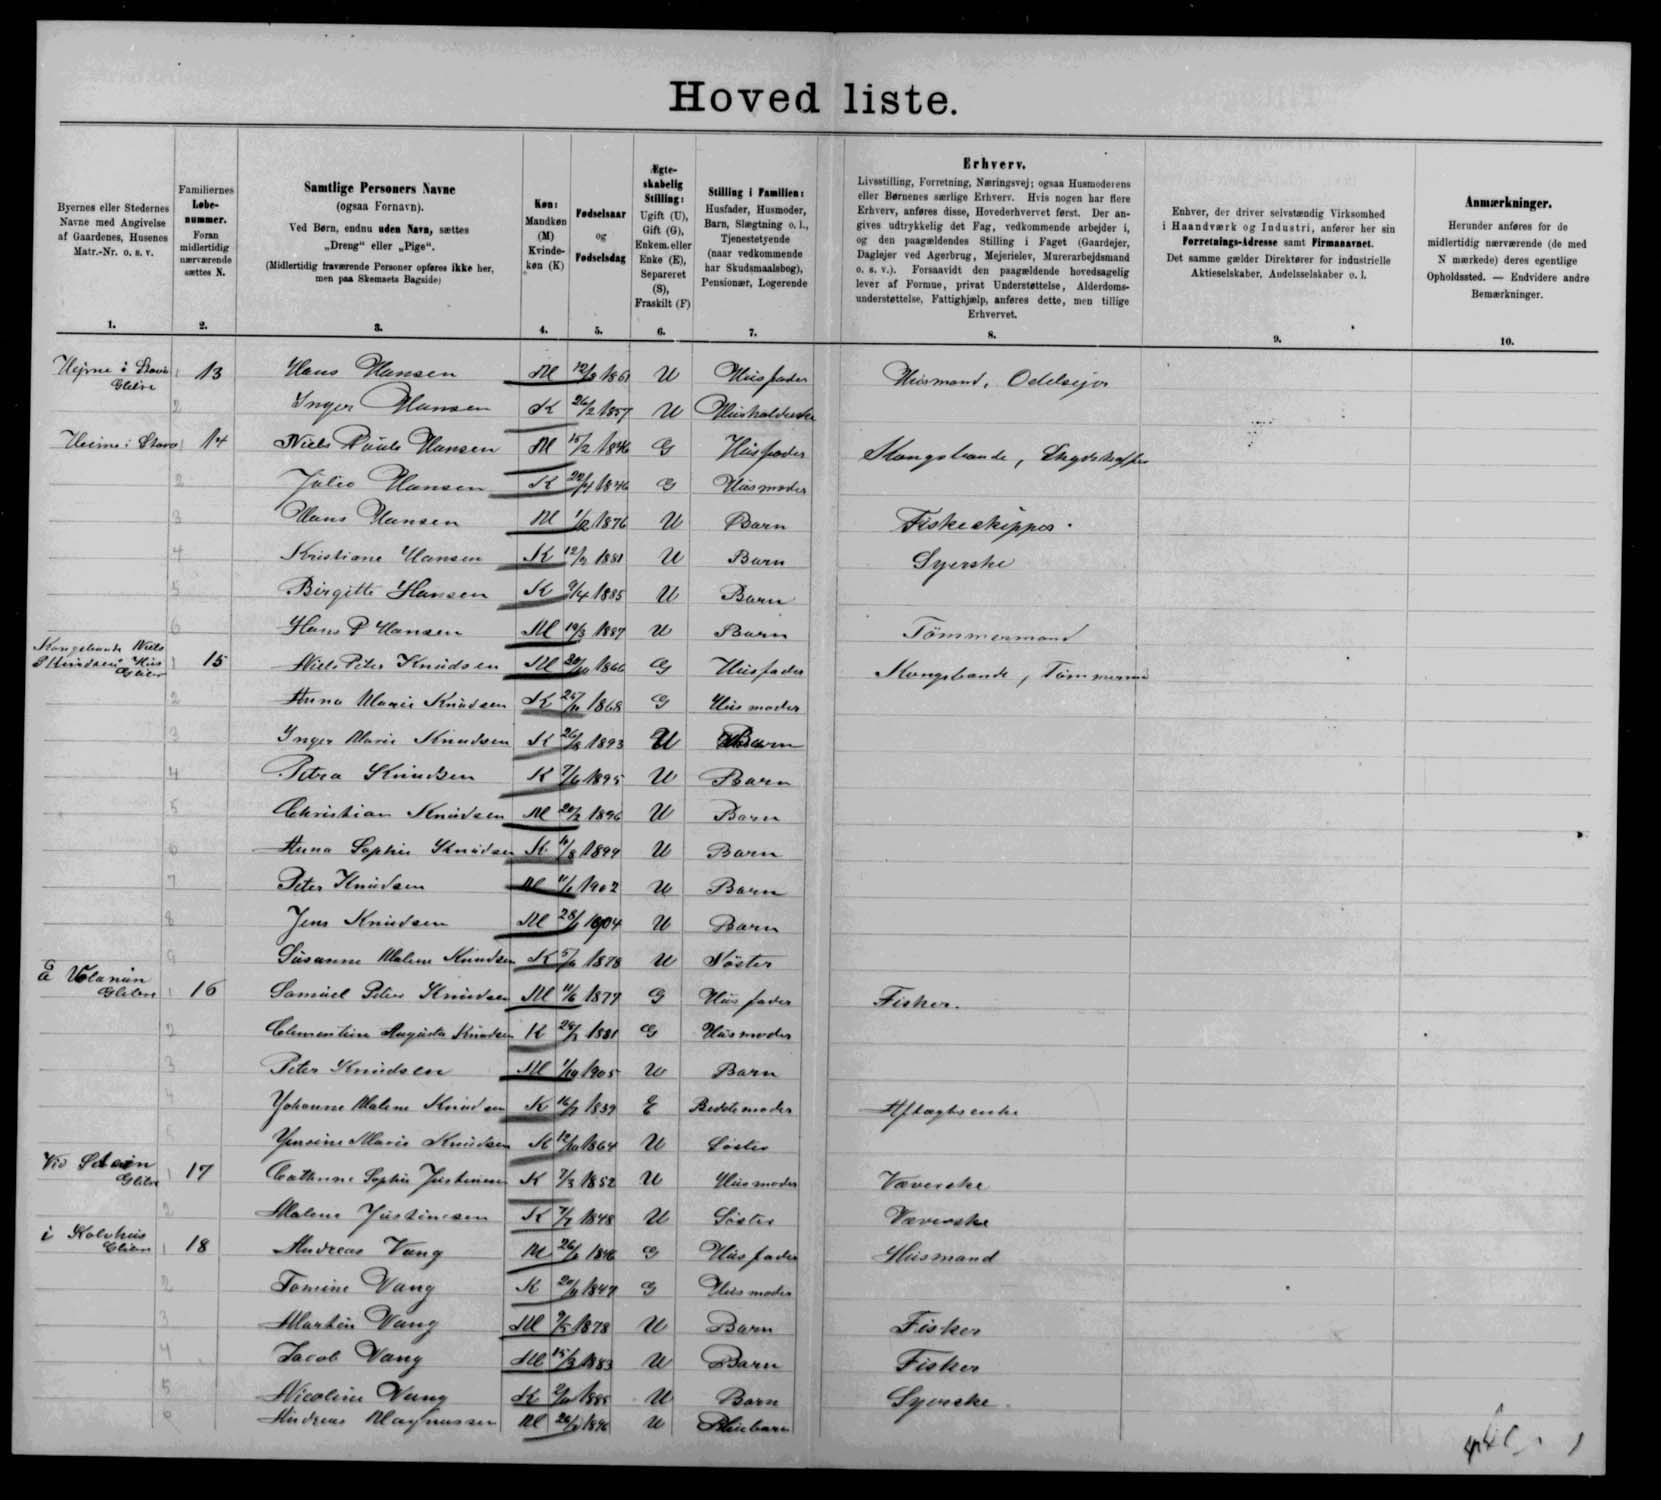 Hovedliste.
Byernes eller Stedernes Navne med Angivelse af Gaardenes, Husenes Matr.-Nr. o. s. v.
Familiernes Løbenummer. Foran midlertidig nærværende sættes N.
Samtlige Personers Navne
(ogsaa Fornavn).
Ved Børn, endnu uden Navn, sættes „Dreng“ eller „Pige“.
(Midlertidig fraværende Personer opføres ikke her, men paa Skemaets Bagside)
Køn: Mandkøn (M) Kvindekøn (K)
Fødselsaar og Fødselsdag
Ægteskabelig Stilling: Ugift (U), Gift (G), Enkem. eller Enke (E), Separeret (S), Fraskilt (F)
Stilling i Familien: Husfader, Husmoder, Barn, Slægtning o. l., Tjenestetyende (naar vedkommende har Skudsmaalsbog), Pensionær, Logerende
Erhverv.
Livsstilling, Forretning, Næringsvej; ogsaa Husmoderens eller Børnenes særlige Erhverv. Hvis nogen har flere Erhverv, anføres disse, Hovederhvervet først. Der angives udtrykkelig det Fag, vedkommende arbejder i, og den paagældendes Stilling i Faget (Gaardejer, Daglejer ved Agerbrug, Mejerielev, Murerarbejdsmand o. s. v.). Forsaavidt den paagældende hovedsagelig lever af Formue, privat Understøttelse, Alderdomsunderstøttelse, Fattighjælp, anføres dette, men tillige Erhvervet.
Enhver, der driver selvstændig Virksomhed i Haandværk og Industri, anfører her sin Forretnings-Adresse samt Firmanavnet. Det samme gælder Direktører for industrielle Aktieselskaber, Andelsselskaber o. l.
Anmærkninger.
Herunder anføres for de midlertidig nærværende (de med N mærkede) deres egentlige Opholdssted. — Endvidere andre Bemærkninger.
1. 2. 3. 4. 5. 6. 7. 8. 9. 10.
1 13 Hans Hansen M U Husfader Husmand, Odelsejer
2 Inger Hansen K 26/2 1857 U Husholderske
14 Niels Hansen M 15/2 1846 G Husfader Kongsbonde
2 Hansen K 1846 G Husmoder
3 Hans Hansen M 1876 U Barn Fiskeskipper
4 Kristiane Hansen K 1881 U Barn Syerske
5 Birgitte Hansen K 9/4 1885 U Barn
6 Hans P Hansen M 1887 U Barn Tömmermand
Kongsbonde Niels
1 15 Niels Peter Knudsen M 1866 G Husfader Kongsbonde,
2 Anna Marie Knudsen K 1868 G Husmoder
3 Inger Marie Knudsen K 26/8 1893 U Barn
4 Petra Knudsen K 1895 U Barn
5 Christian Knudsen M 1896 U Barn
6 Anna Sophie Knudsen K 1899 U Barn
7 Peter Knudsen M 1902 U Barn
8 Jens Knudsen M 1904 U Barn
9 Susanne Malene Knudsen K 1878 U Söster
1 16 Samuel Peter Knudsen M 11/6 1879 G Husfader Fisker.
2 Clementine Augusta Knudsen K 1881 G Husmoder
3 Peter Knudsen M 1905 U Barn
4 Johanne Malene Knudsen K 1839 E Bedstemoder Aftægtsenke
Marie Knudsen K 1864 U Söster
1 17 Cathrine Sophie Justinussen K 7/3 1852 U Husmoder Væverske
2 Malene Justinesen K 1848 U Söster Væverske
1 18 Andreas Vang M 1846 G Husfader Husmand
2 Tomine Vang K 1849 G Husmoder
3 Martin Vang M 9/5 1878 U Barn Fisker
4 Jacob Vang M 1883 U Barn Fisker
5 Nicoline Vang K 1885 U Barn Syerske
6 Andreas Magnussen M 1896 U